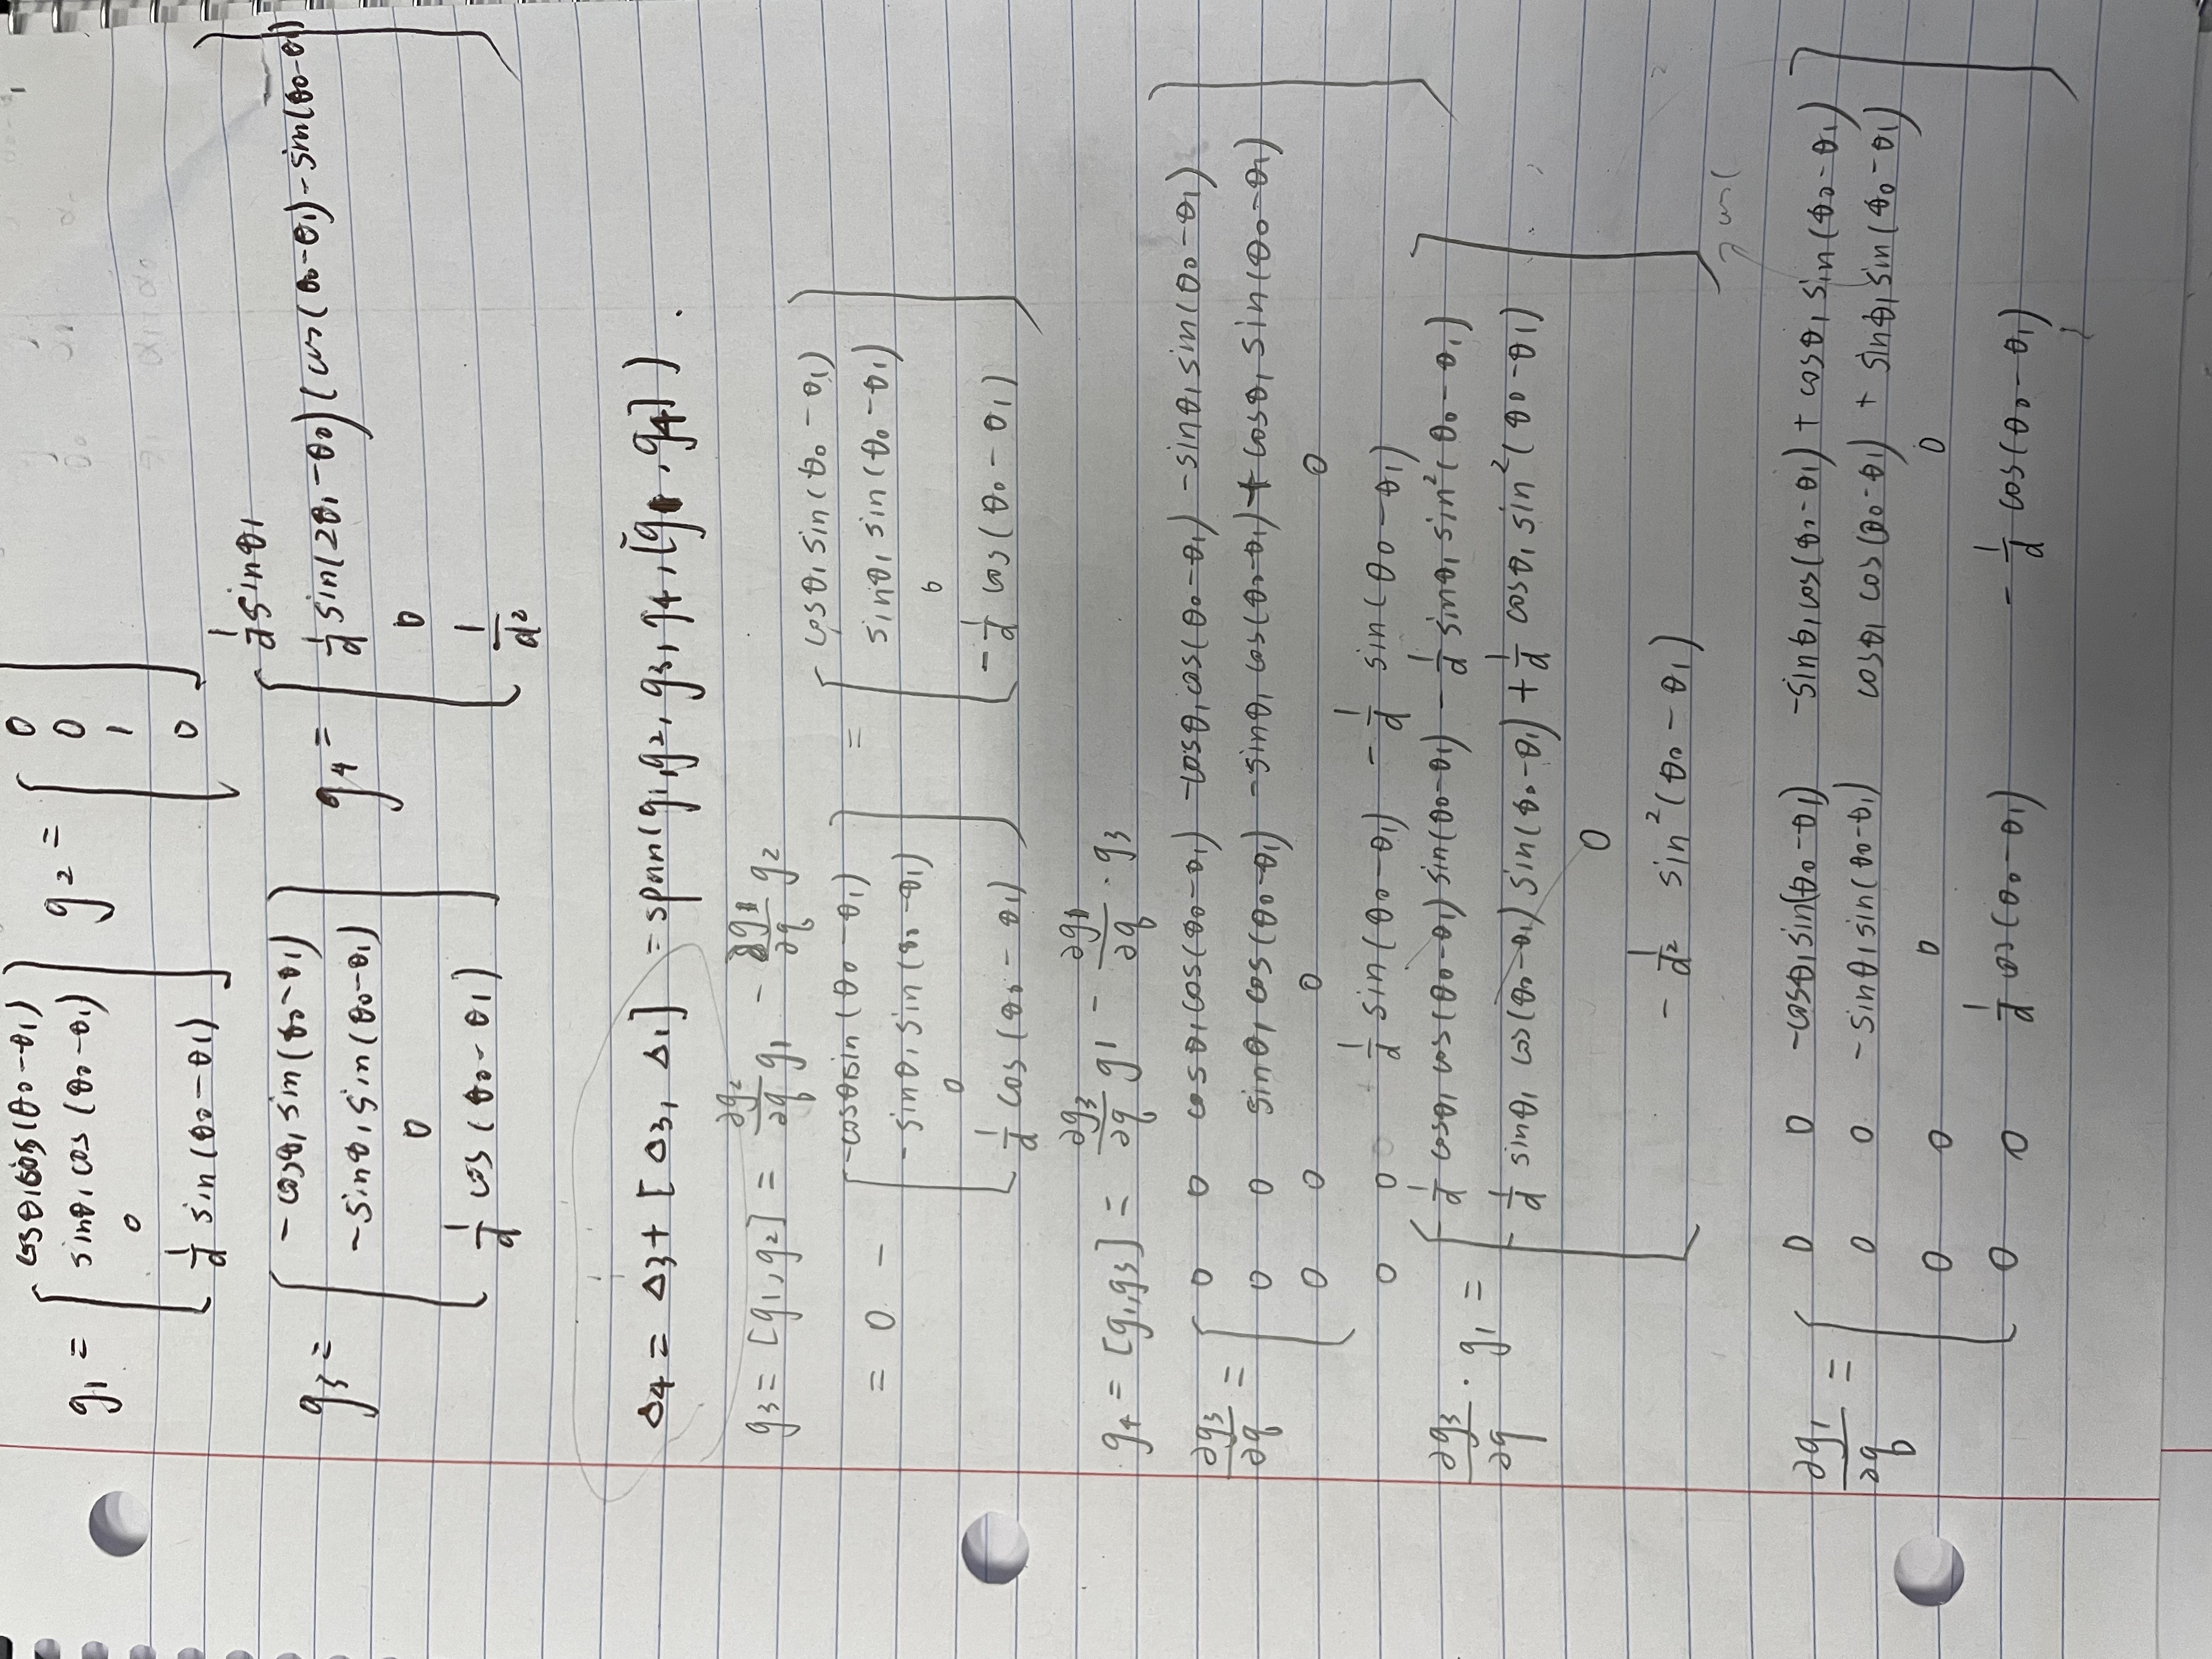 g₁ = [ cosθ₁cos(θ₀−θ₁) ; sinθ₁ cos (θ₀−θ₁) ; 0 ; 1/d sin(θ₀−θ₁) ] g₂ = [ 0 ; 0 ; 1 ; 0 ]
g₃ = [ −cosθ₁ sin(θ₀−θ₁) ; −sinθ₁ sin(θ₀−θ₁) ; 0 ; 1/d cos(θ₀−θ₁) ] g₄ = [ 1/d sinθ₁ ; 1/d sin(2θ₁−θ₀)(cos(θ₀−θ₁)−sin(θ₀−θ₁) ; 0 ; 1/d² ]
Δ₄ = Δ₃ + [Δ₃, Δ₁] = span(g₁,g₂, g₃, g₄, [g₁, g₄]) .
g₃ = [g₁, g₂] = ∂g₂/∂q g₁ − ∂g₁/∂q g₂
= 0 − [ −cosθ₁sin(θ₀−θ₁) ; −sinθ₁ sin(θ₀−θ₁) ; 0 ; 1/d cos(θ₀−θ₁) ] = [ cosθ₁ sin(θ₀−θ₁) ; sinθ₁ sin(θ₀−θ₁) ; 0 ; −1/d cos(θ₀−θ₁) ]
g₄ = [g₁,g₃] = ∂g₃/∂q g₁ − ∂g₁/∂q · g₃
∂g₃/∂q = [ 0 0 cosθ₁cos(θ₀−θ₁) −cosθ₁cos(θ₀−θ₁) −sinθ₁sin(θ₀−θ₁) ; 0 0 sinθ₁ cos(θ₀−θ₁) −sinθ₁ cos(θ₀−θ₁) + cosθ₁ sin(θ₀−θ₁) ; 0 0 0 0 ; 0 0 1/d sin(θ₀−θ₁) −1/d sin(θ₀−θ₁) ]
∂g₃/∂q · g₁ = [ −1/d cosθ₁ cos(θ₀−θ₁) sin(θ₀−θ₁) − 1/d sinθ₁ sin²(θ₀−θ₁) ; −1/d sinθ₁ cos(θ₀−θ₁) sin(θ₀−θ₁) + 1/d cosθ₁ sin²(θ₀−θ₁) ; 0 ; −1/d² sin²(θ₀−θ₁) ]
∂g₁/∂q = [ 0 0 −cosθ₁sin(θ₀−θ₁) −sinθ₁cos(θ₀−θ₁) + cosθ₁ sin(θ₀−θ₁) ; 0 0 −sinθ₁sin(θ₀−θ₁) cosθ₁ cos(θ₀−θ₁) + sinθ₁ sin(θ₀−θ₁) ; 0 0 0 0 ; 0 0 1/d cos(θ₀−θ₁) −1/d cos(θ₀−θ₁) ]